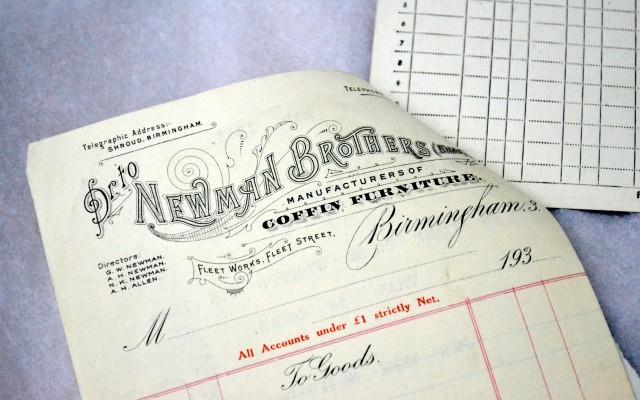 Telegraphic Address:
SHROUD, BIRMINGHAM.
Dr. to
NEWMAN BROTHERS
MANUFACTURERS OF
COFFIN FURNITURE.
Birmingham. 3.
FLEET WORKS, FLEET STREET.
Directors
G. W. NEWMAN.
A. H. NEWMAN.
N. K. NEWMAN.
A. H. ALLEN.
193
M
All Accounts under £1 strictly Net.
To Goods.
5
6
7
8
9
10
11
12